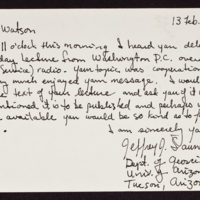 13 Feb.
Watson
11 o'clock this morning I heard you del
day lecture from Washington P.C. over
Service) radio. Your topic was cooperation
much enjoyed your message. I would
text of your lecture and ask you if i
tioned it is to be published and perhaps y
available you would be so kind as to f
I am sincerely y
Jeffrey J.
Dept. of Geosci
Univ. of Arizon
Tucson, Arizo